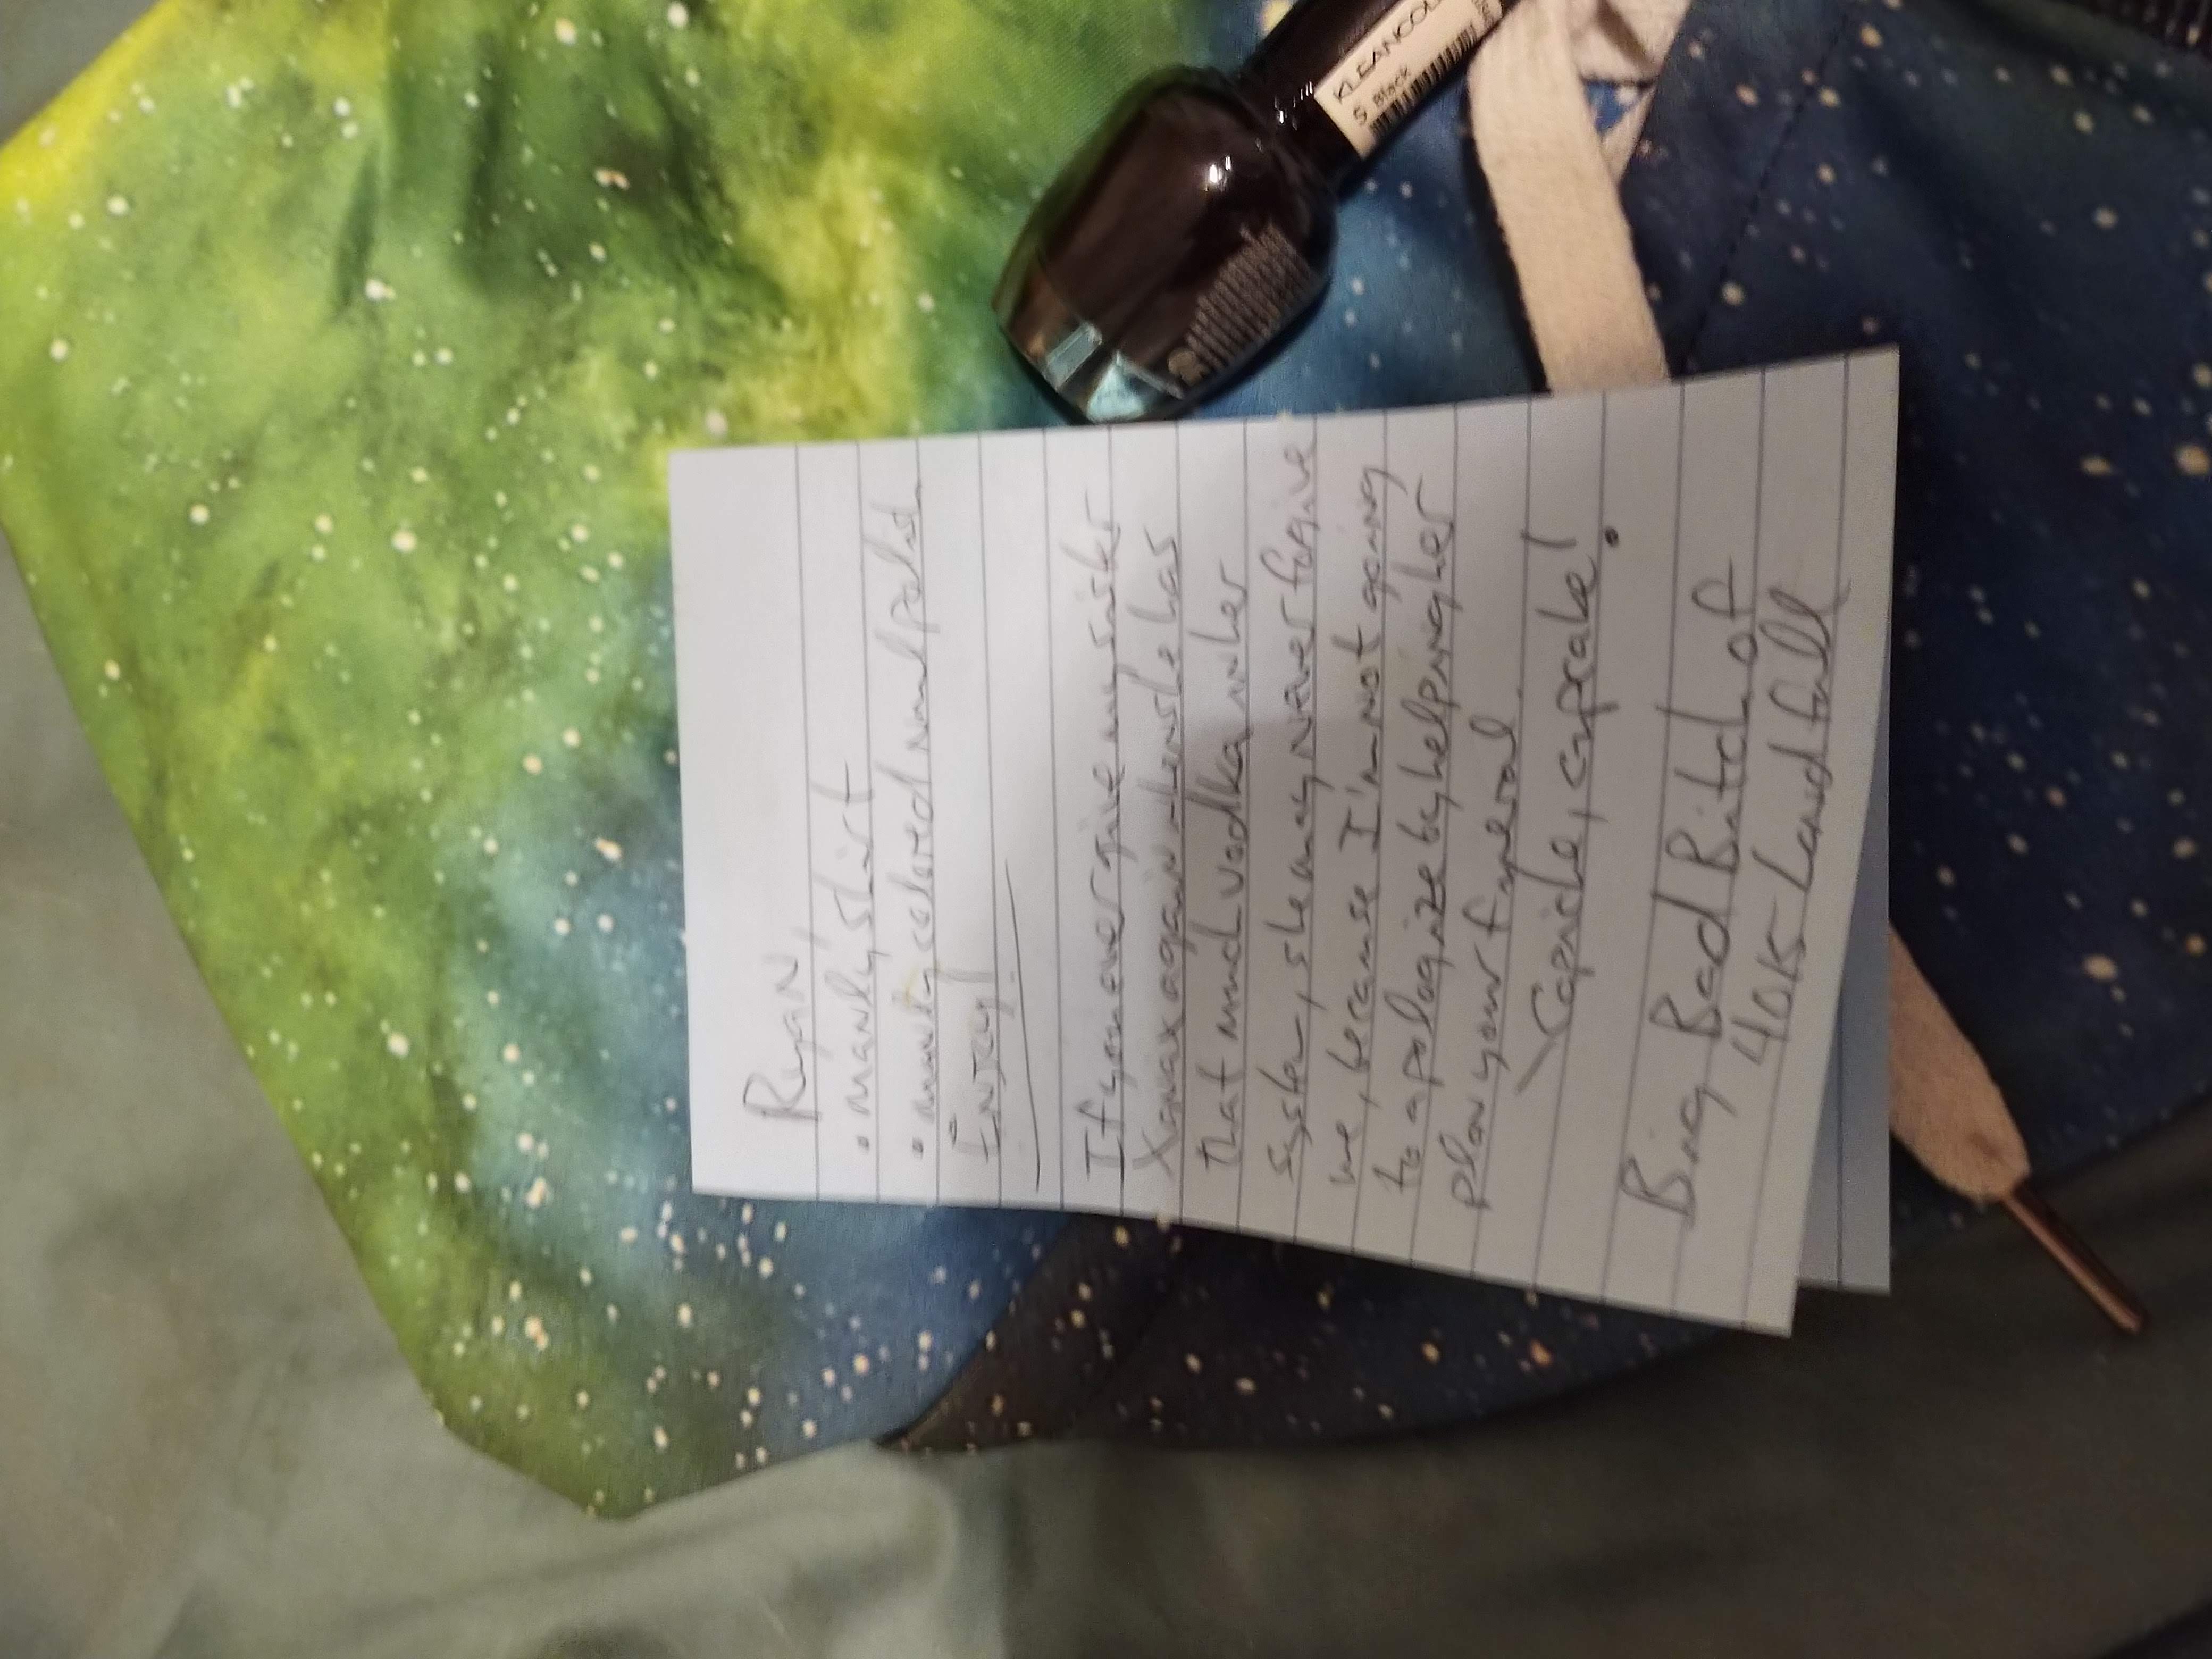 Ryan,
• manly shirt
• manly colored nail polish
Enjoy!
If you ever give my sister
Xanax again when she has
that much vodka in her
system, she may never forgive
me, because I'm not going
to apologize by helping her
plan your funeral.
\Capiche, cupcake!
Big Bad Bitch of
Landfall
KLEANCOL
5 Black